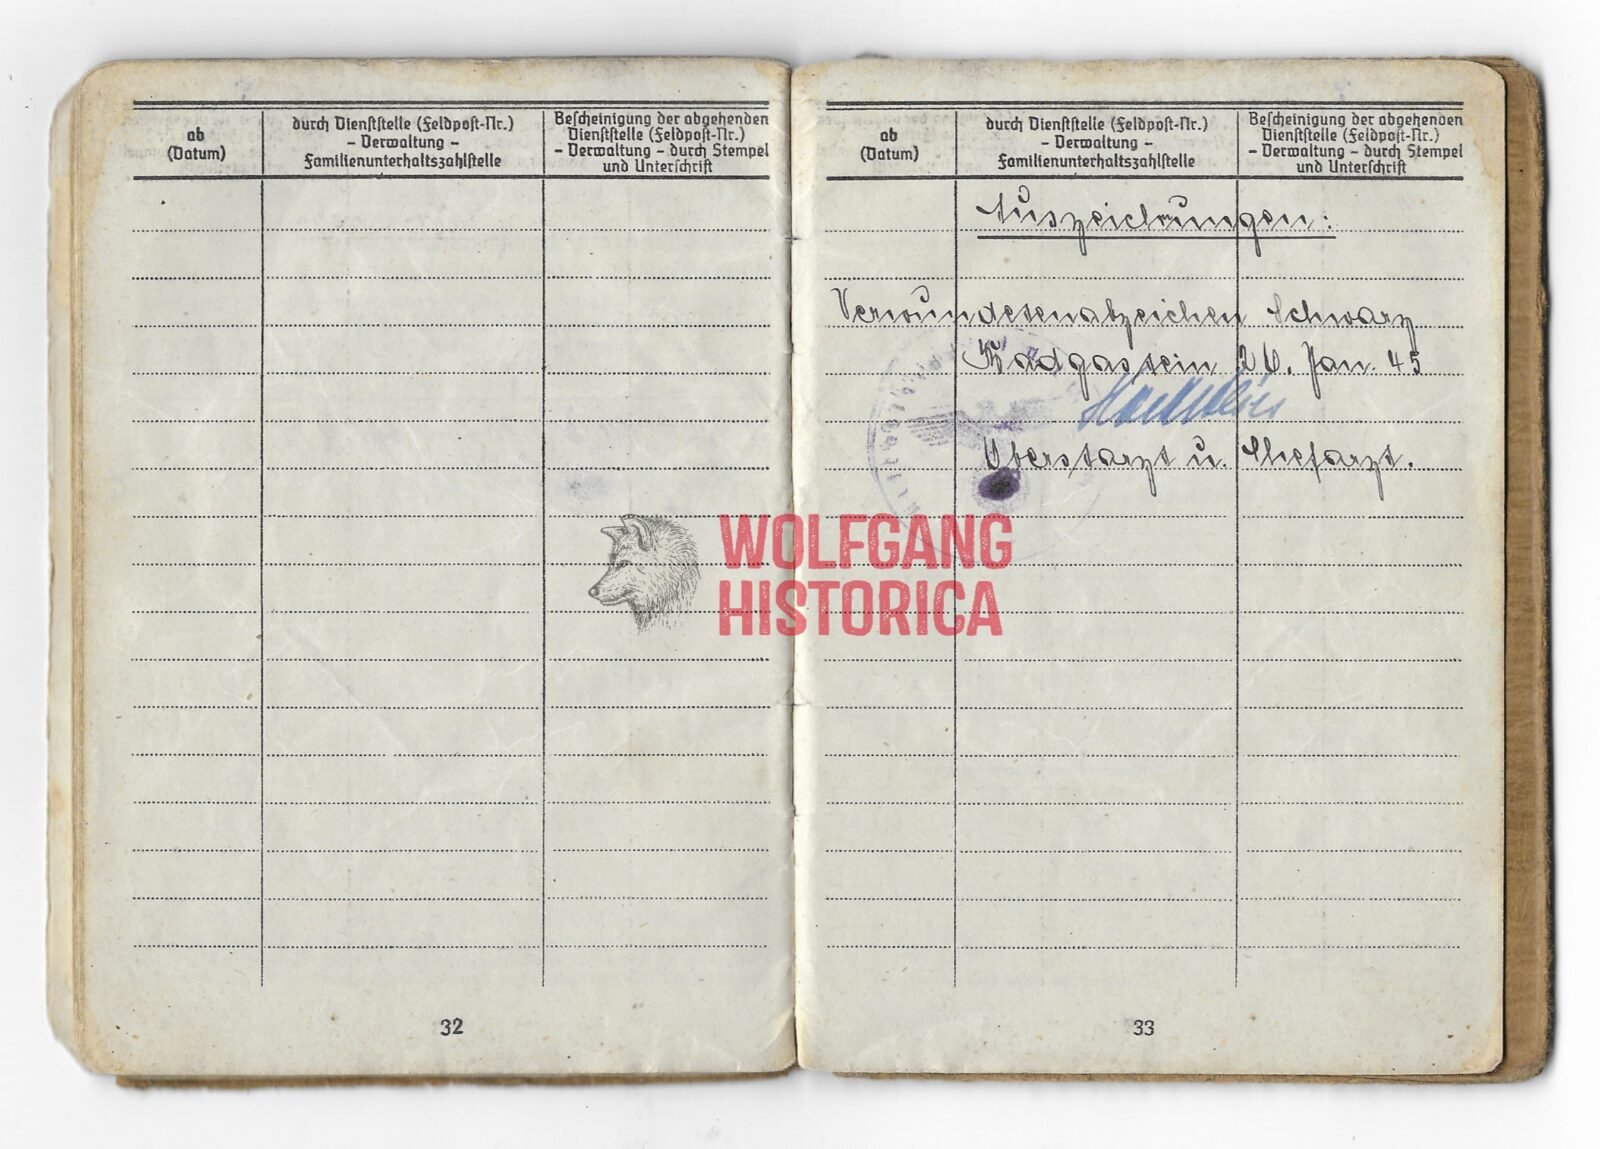 ab
(Datum)
durch Dienststelle (Feldpost-Nr.)
- Verwaltung -
Familienunterhaltszahlstelle
Bescheinigung der abgehenden
Dienststelle (Feldpost-Nr.)
- Verwaltung - durch Stempel
und Unterschrift
32
ab
(Datum)
durch Dienststelle (Feldpost-Nr.)
- Verwaltung -
Familienunterhaltszahlstelle
Bescheinigung der abgehenden
Dienststelle (Feldpost-Nr.)
- Verwaltung - durch Stempel
und Unterschrift
Auszeichnungen:
Verwundetenabzeichen Schwarz
Badgastein 20. Jan. 45
Oberstarzt u. Chefarzt.
33
WOLFGANG
HISTORICA